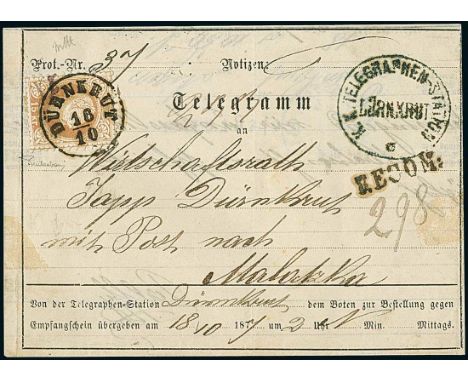 Prot.-Nr. 37 Notizen:
DÜRNKRUT
16
10
K.K. TELEGRAPHEN-STATION
DÜRNKRUT
c
Telegramm
an
RECOM:
298
Wirtschaftsrath
Japp Dürnkrut
mit Post nach
Malatzka
Von der Telegraphen-Station Dürnkrut dem Boten zur Bestellung gegen
Empfangschein übergeben am 18/10 1877 um 2 Uhr Min. Mittags.